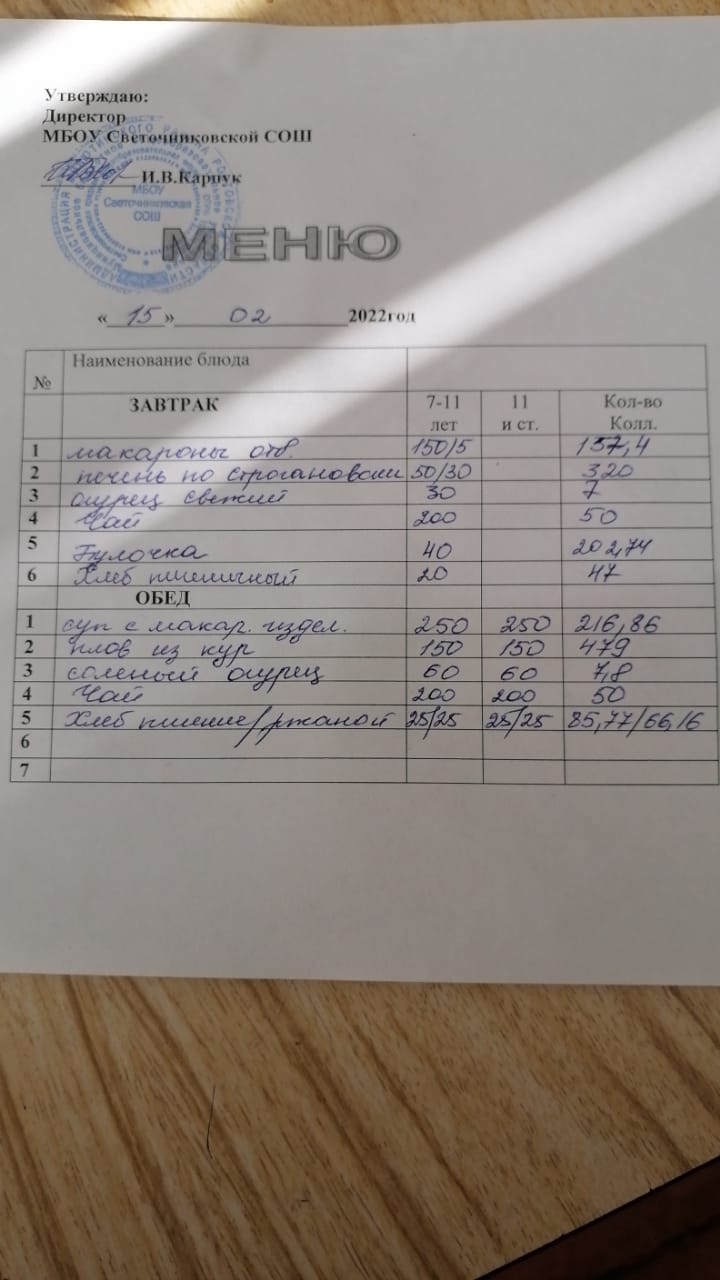 Утверждаю:
Директор
МБОУ Светочниковской СОШ
И.В.Карпук
МБОУ
Светочниковская
СОШ
МЕНЮ
«15» 02 2022год
№ Наименование блюда
ЗАВТРАК 7-11 лет 11 и ст. Кол-во Колл.
1 макароны отв. 150/5 157,4
2 печень по строгановски 50/30 320
3 огурец свежий 30 7
4 Чай 200 50
5 Булочка 40 202,74
6 Хлеб пшеничный 20 47
ОБЕД
1 суп с макар. издел. 250 250 216,86
2 плов из кур 150 150 479
3 соленый огурец 60 60 7,8
4 Чай 200 200 50
5 Хлеб пшенич/ржаной 25/25 25/25 85,77/66,16
6
7